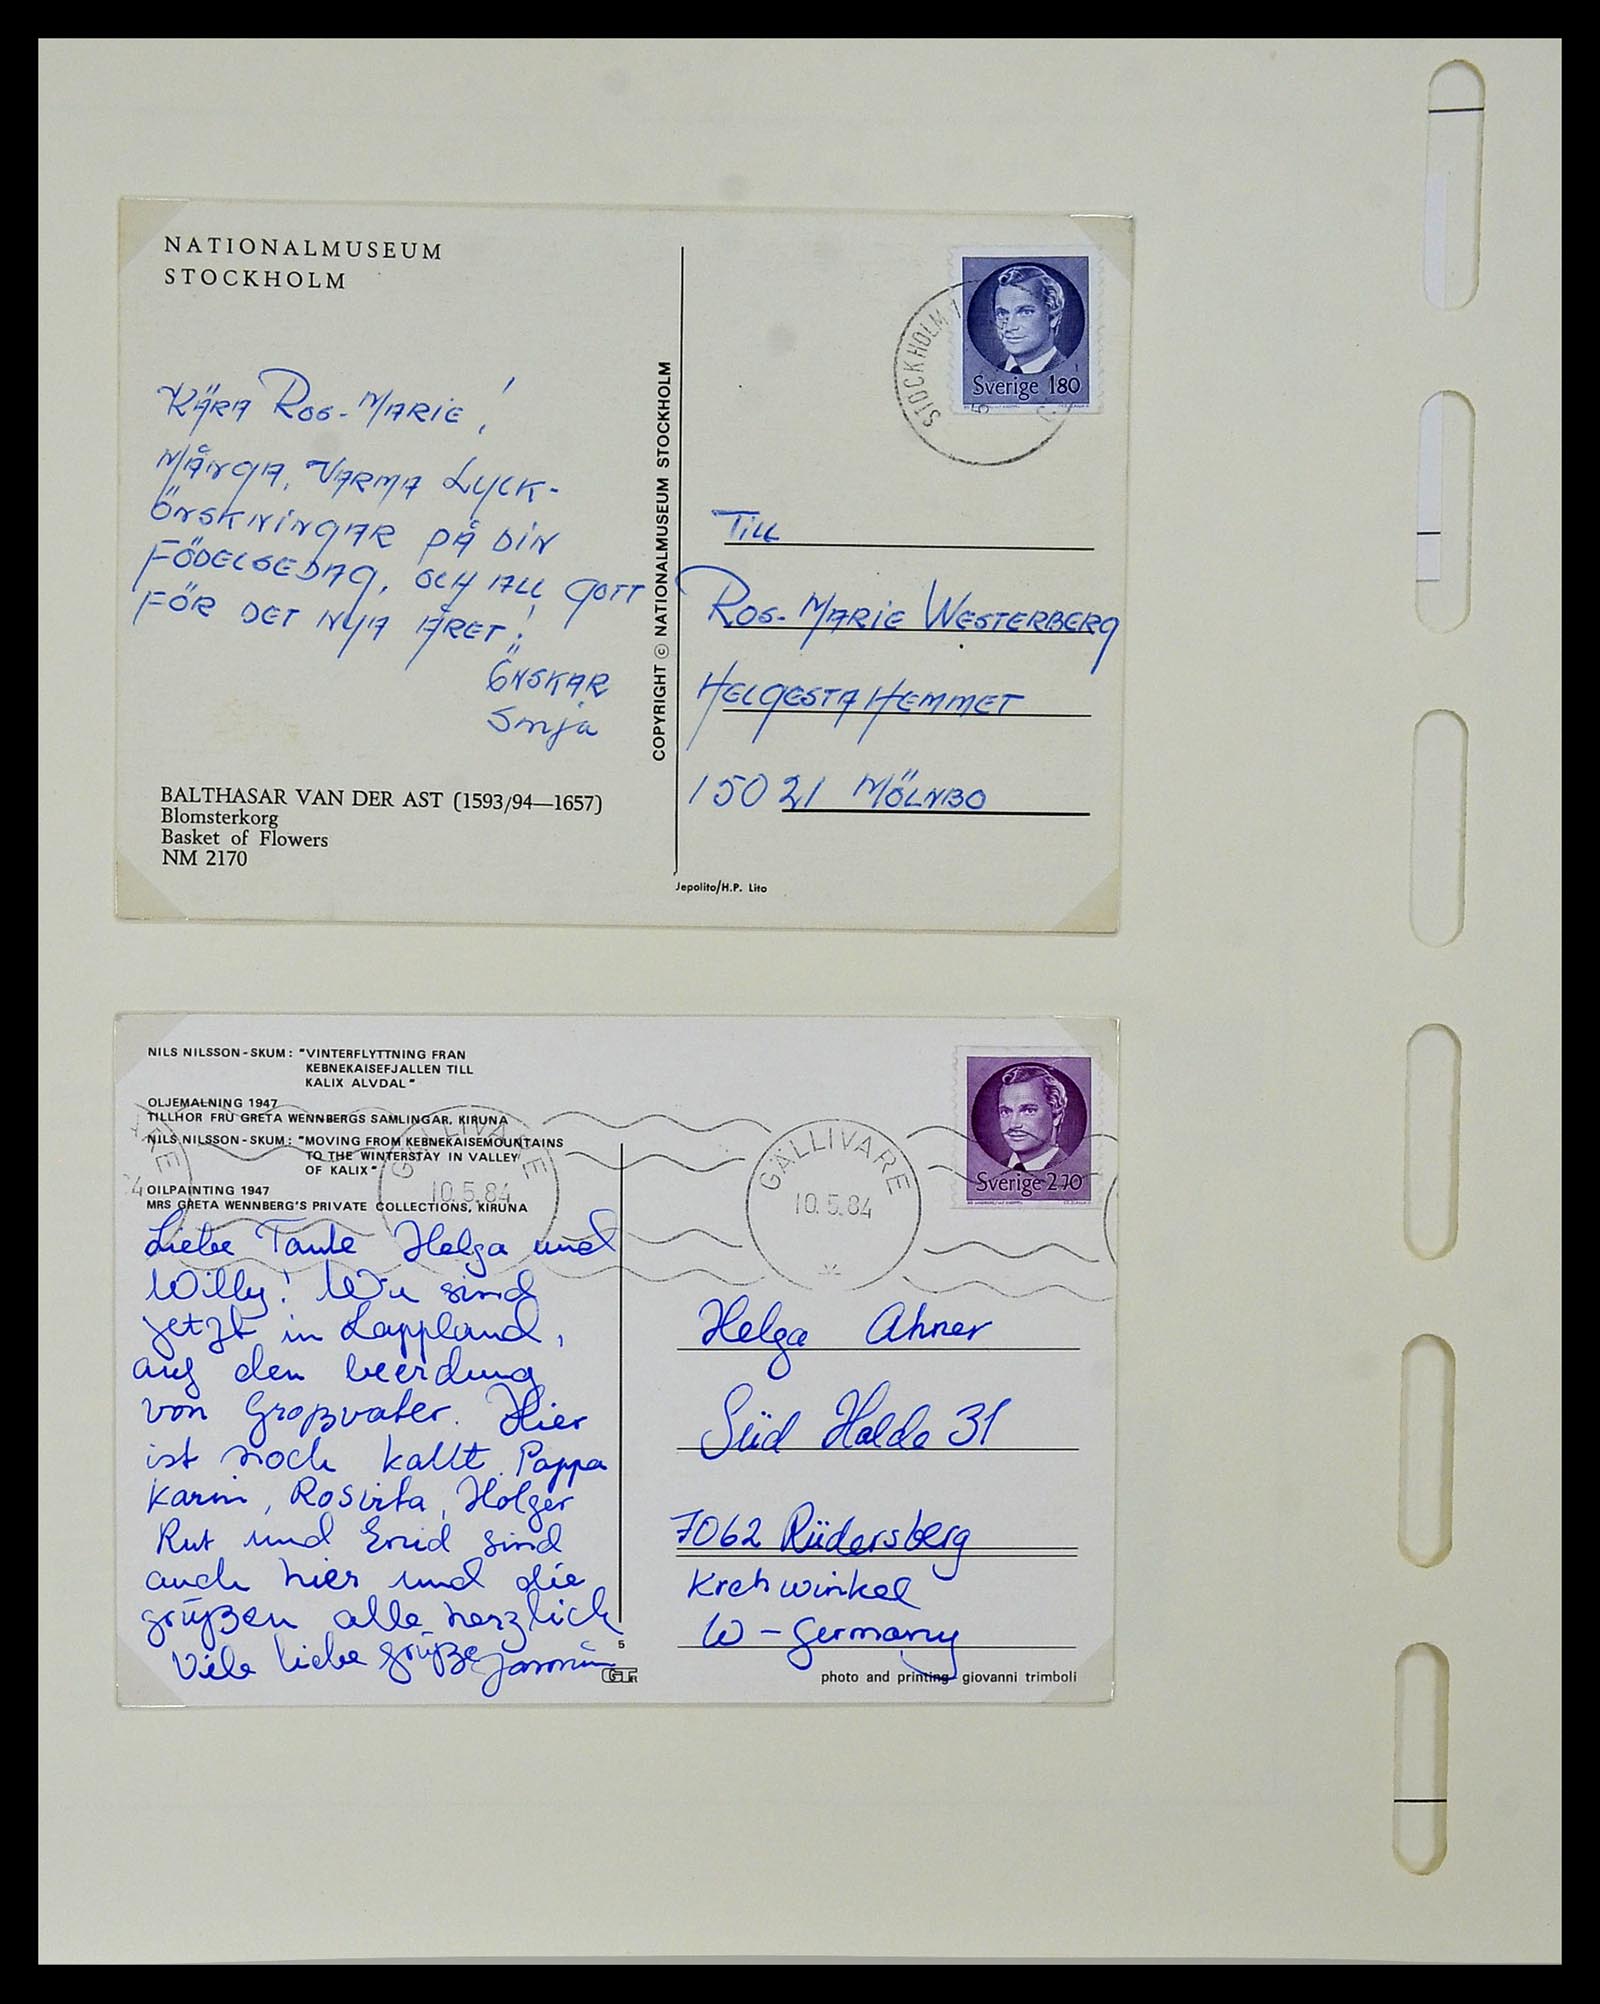 NATIONALMUSEUM
STOCKHOLM
KÄRA ROS-MARIE!
MÅNGA, VARMA LYCK-
ÖNSKNINGAR PÅ DIN
FÖDELSEDAG, OCH ALL GOTT
FÖR DET NYA ÅRET!
ÖNSKAR
BALTHASAR VAN DER AST (1593/94—1657)
Blomsterkorg
Basket of Flowers
NM 2170
COPYRIGHT © NATIONALMUSEUM STOCKHOLM
Jepolito/H.P. Lito
STOCKHOLM 1
Sverige 180
TILL
ROS-MARIE WESTERBERG
HELGESTAHEMMET
150 21 MÖLNBO
NILS NILSSON-SKUM: "VINTERFLYTTNING FRAN
KEBNEKAISEFJALLEN TILL
KALIX ALVDAL"
OLJEMALNING 1947
TILLHOR FRU GRETA WENNBERGS SAMLINGAR, KIRUNA
NILS NILSSON-SKUM: "MOVING FROM KEBNEKAISEMOUNTAINS
TO THE WINTERSTAY IN VALLEY
OF KALIX"
OILPAINTING 1947
MRS GRETA WENNBERG'S PRIVATE COLLECTIONS, KIRUNA
GÄLLIVARE
10.5.84
GÄLLIVARE
10.5.84
Sverige 2.70
Liebe Tante Helga und
Willy! Wir sind
jetzt in Lappland,
auf den beerdung
von Großvater. Hier
ist noch kallt. Pappa
Karin, Rosvita, Holger
Rut und Enid sind
auch hier und die
grüßen alle herzlich
Viele liebe grüße Jasmin
Helga Ahner
Süd Halde 31
7062 Rüdersberg
Krehwinkel
W-Germany
5
GT
photo and printing giovanni trimboli